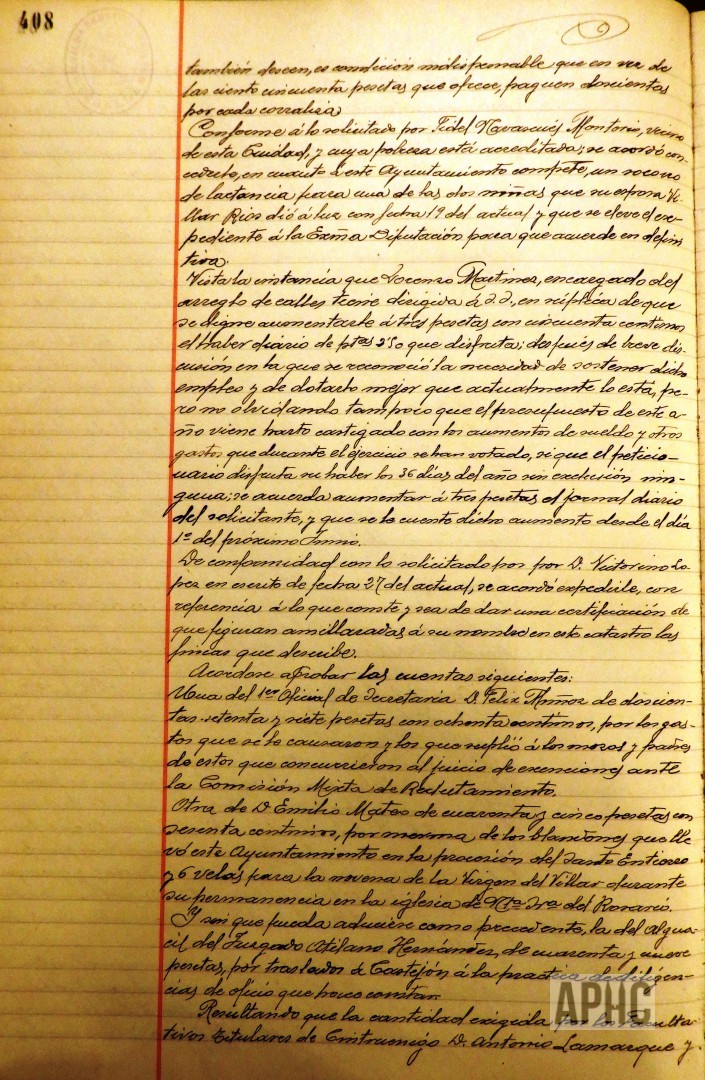 408
también deseen, es condición indispensable que en vez de
las ciento cincuenta pesetas que ofrece, paguen doscientas
por cada corraliza
Conforme á lo solicitado por Fidel Navascués Montorio, vecino
de esta Ciudad, y cuya pobreza está acreditada; se acordó con-
cederle, en cuanto á este Ayuntamiento compete, un socorro
de lactancia para una de las dos niñas que su esposa Vi-
llar Rios dió á luz con fecha 19 del actual y que se eleve el ex-
pediente á la Exma Diputación para que acuerde en defini-
tiva.
Vista la instancia que Lorenzo Martinez, encargado del
arreglo de calles tiene dirigida á S.S., en súplica de que
se digne aumentarle á tres pesetas con cincuenta centimos
el haber diario de ptas 2'50 que disfruta; después de breve dis-
cusión en la que se reconoció la necesidad de sostener dicho
empleo y de dotarlo mejor que actualmente lo está, pe-
ro no olvidando tampoco que el presupuesto de este a-
ño viene harto castigado con los aumentos de sueldo y otros
gastos que durante el ejercicio se han votado, y que el peticio-
nario disfruta su haber los 36 días del año sin exclusión nin-
guna; se acuerda aumentar á tres pesetas el jornal diario
del solicitante, y que se le cuente dicho aumento desde el día
1º del próximo Junio.
De conformidad con lo solicitado por por D. Victorino Lo-
pez en escrito de fecha 27 del actual, se acordó expedirle, con
referencia á lo que conste y sea de dar una certificación de
que figuran amillaradas á su nombre en este catastro las
fincas que describe.
Acordose aprobar las cuentas siguientes:
Una del 1er Oficial de Secretaria D. Felix Muñoz de doscien-
tas setenta y siete pesetas con ochenta centimos, por los gas-
tos que se le causaron y los que suplió á los mozos y padres
de estos que concurrieron al juicio de exenciones ante
la Comisión Mixta de Reclutamiento.
Otra de D Emilio Mateo de cuarenta y cinco pesetas con
sesenta centimos, por merma de los blandones que lle-
vó este Ayuntamiento en la procesión del Santo Entierro
y 6 velas para la novena de la Virgen del Villar durante
su permanencia en la iglesia de Ntra Sra del Rosario.
Y sin que pueda aducirse como precedente, la del Algua-
cil del Juzgado Atilano Hernández, de cuarenta y nueve
pesetas, por traslados á Castejón á la practica de diligen-
cias de oficio que hace constar.
Resultando que la cantidad exigida por los Faculta-
tivos titulares de Cintruenigo D. Antonio Lamarque y
APHC